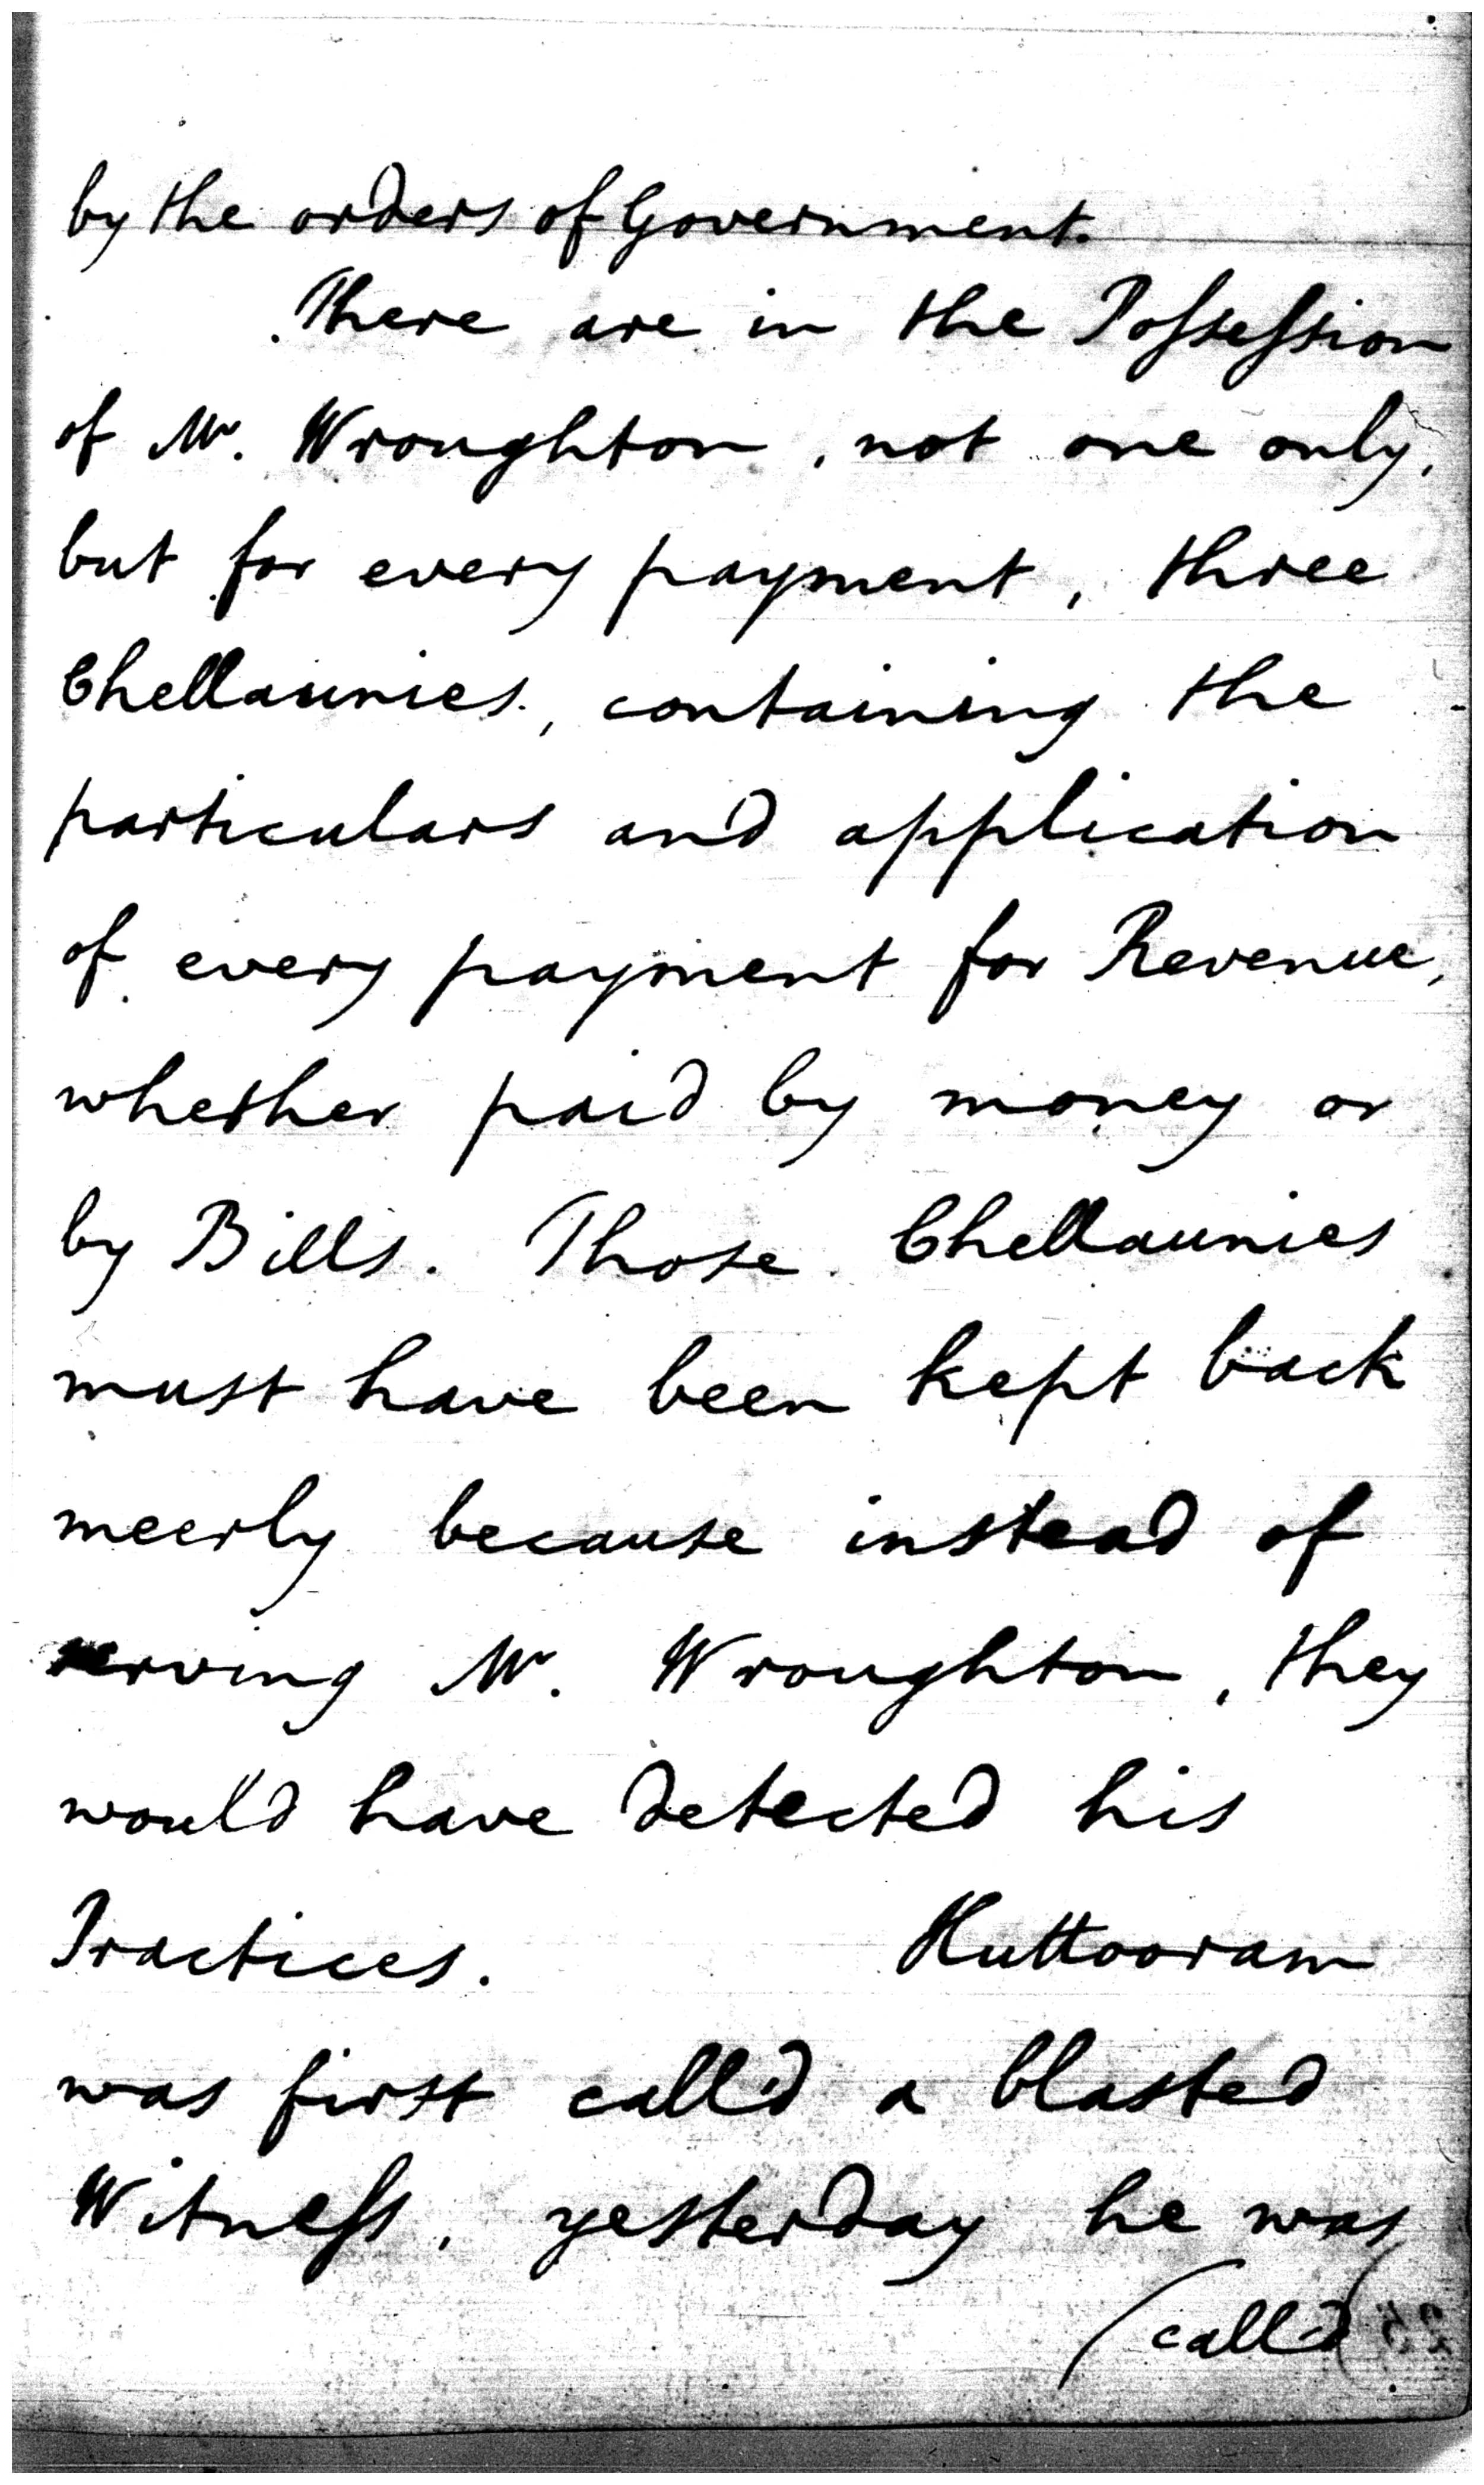 by the orders of Government.
There are in the Possession
of Mr. Wroughton, not one only,
but for every payment, three
Chellaunies, containing the
particulars and application
of every payment for Revenue,
whether paid by money or
by Bills. Those Chellaunies
must have been kept back
meerly because instead of
serving Mr. Wroughton, they
would have detected his
Practices. Huttooram
was first call'd a blasted
Witness, yesterday he was
(call'd